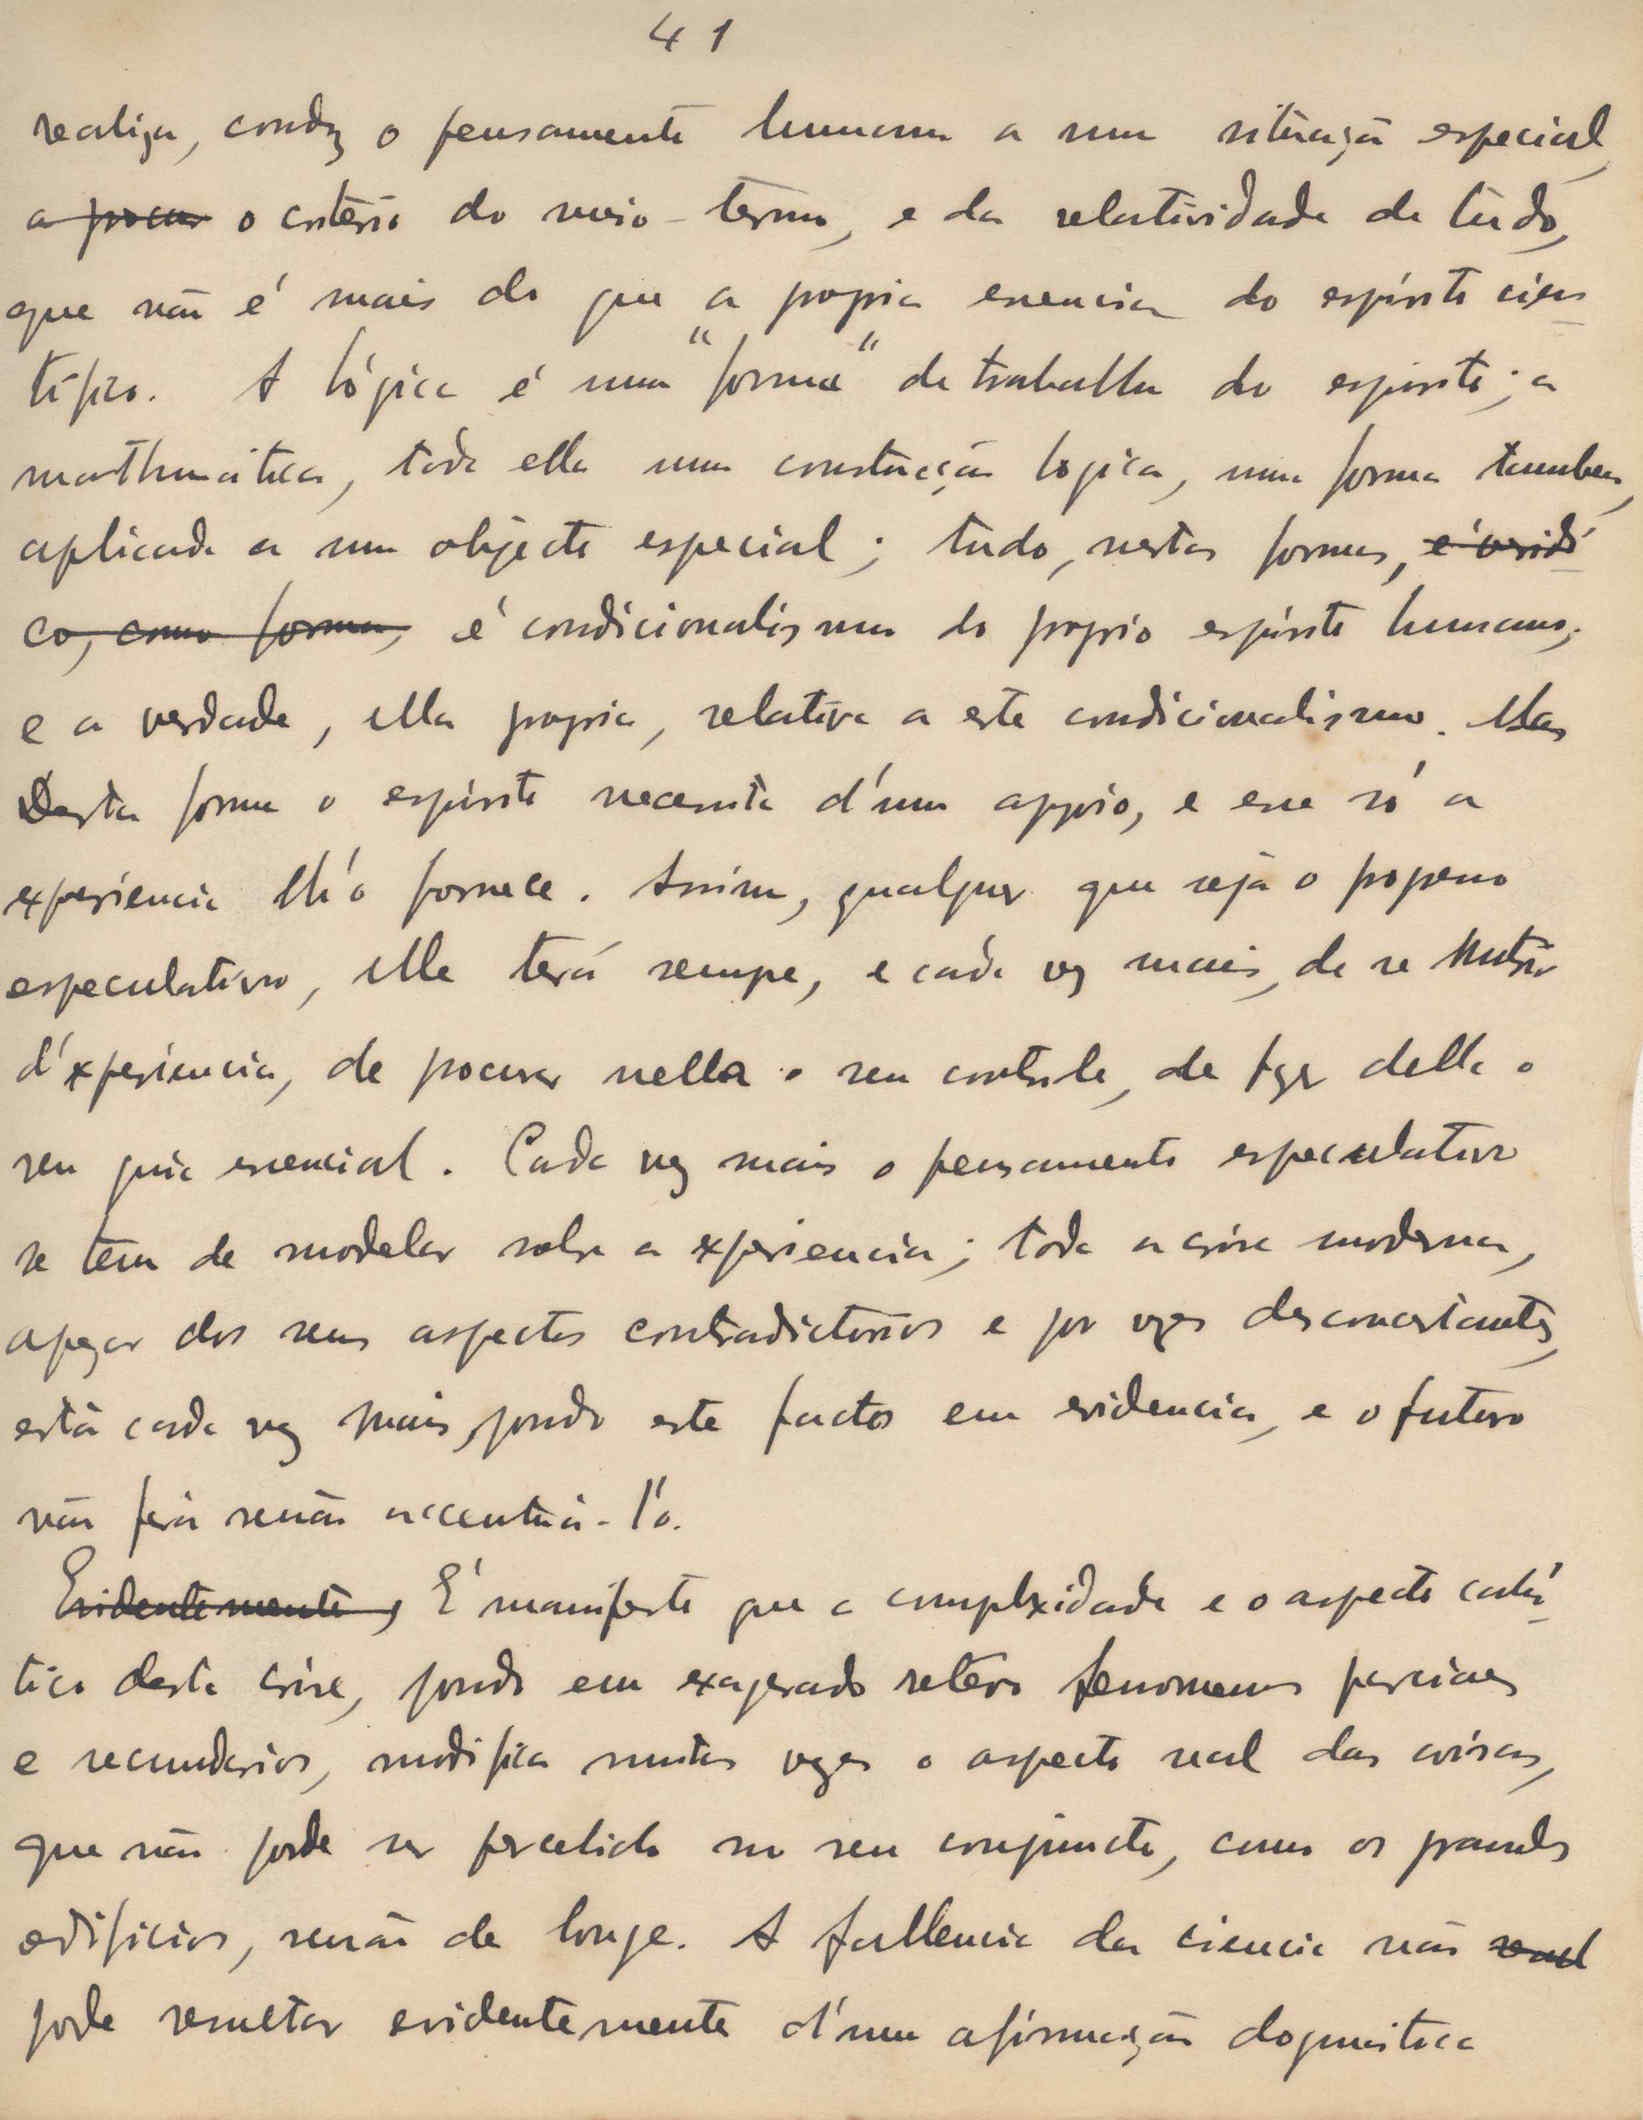 41
realiza, conduz o pensamento humano a uma situação especial,
a procur o critério do meio-termo, e da relatividade de tudo,
que não é mais do que a propria essencia do espírito cien-
tífico. A lógica é uma "forma" de trabalho do espirito; a
mathmática, toda ella uma construcção logica, uma forma tambem,
aplicada a um objecto especial; tudo, nestas formas, é verídi-
co, como forma, é condicionalismo do proprio espírito humano;
e a verdade, ella propria, relativa a este condicionalismo. Mas
Desta forma o espírito necessita d'um appoio, e esse só a
experiencia lh'o fornece. Assim, qualquer que seja o processo
especulativo, elle terá sempre, e cada vez mais, de se nutrir
d'experiencia, de procurar nella o seu controle, de fazer della o
seu guia essencial. Cada vez mais o pensamento especulativo
se tem de modelar sobre a experiencia; toda a crise moderna,
apezar dos seus aspectos contradictorios e por vezes desconcertantes,
está cada vez mais pondo este facto em evidencia, e o futuro
não fará senão accentuá-l'o.
Evidentemente, É manifesto que a complexidade e o aspecto caó-
tico desta crise, pondo em exagerado relevo fenomenos parciaes
e secundarios, modifica muitas vezes o aspecto real das coisas,
que não pode ser percebido no seu conjuncto, como os grandes
edificios, senão de longe. A fallencia da ciencia não
pode resultar evidentemente d'uma afirmação dogmática